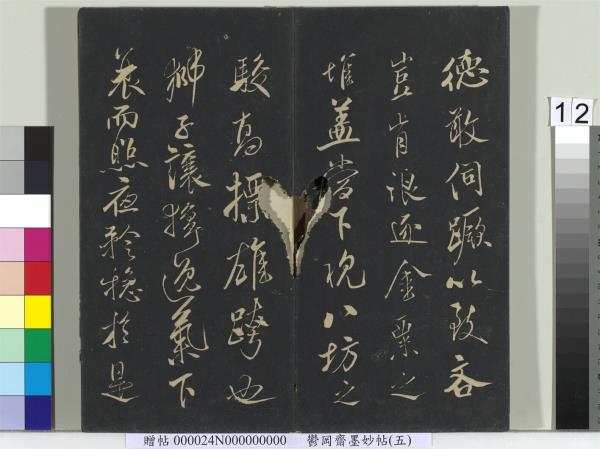 德敢伺蹶以致吝
豈肯浪逐金粟之
堆蓋當下視八坊之
駿高標雄跨也
獅子讓獰逸氣下
衰而照夜矜穩於是
12
贈帖 000024N000000000 鬱岡齋墨妙帖(五)